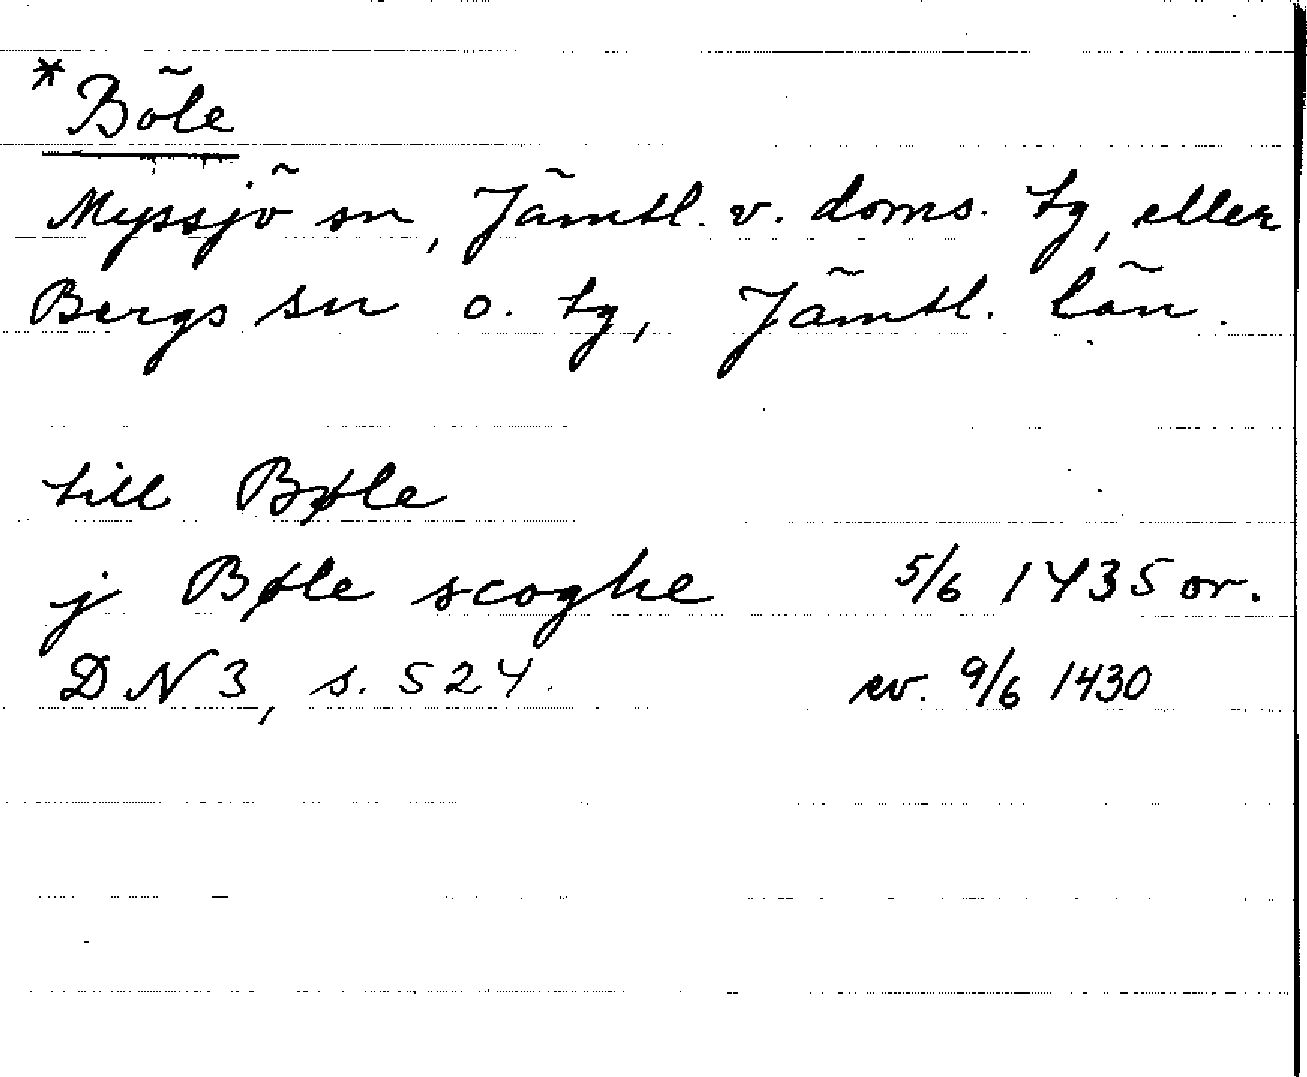 *Böle
Myssjö sn, Jämtl. v. doms. tg, eller
Bergs sn o. tg, Jämtl. län.
till Bøle
j Bøle scoghe 5/6 1435 or.
DN 3, s. 524. ev. 9/6 1430